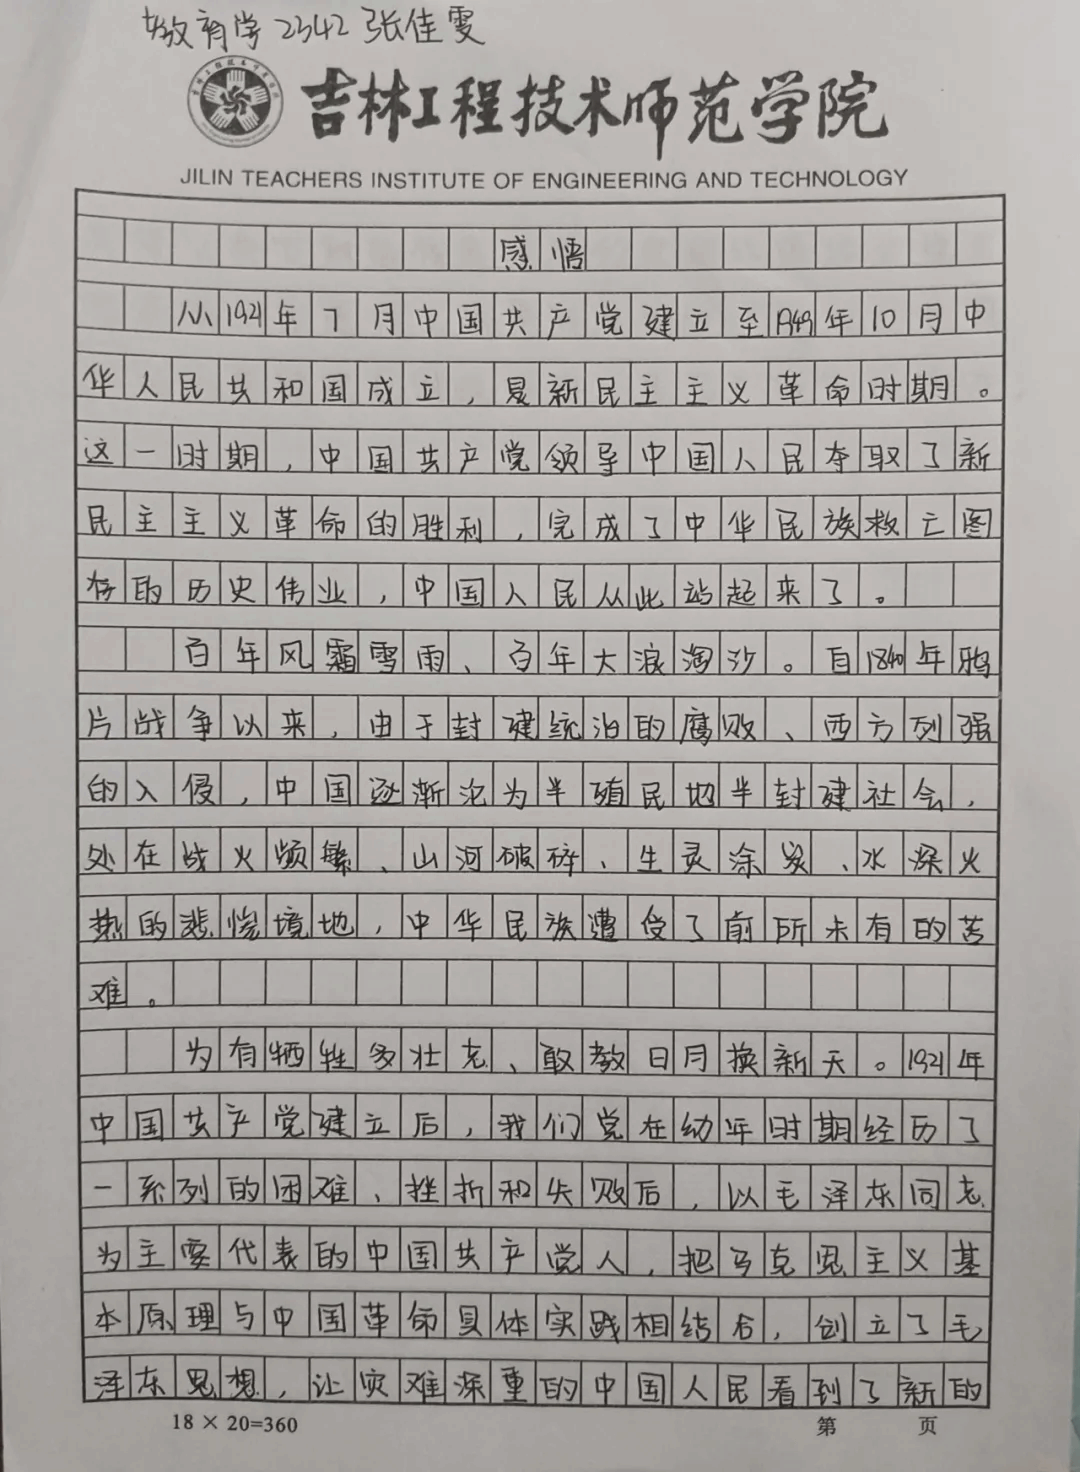 教育学2342 张佳雯
吉林工程技术师范学院
JILIN TEACHERS INSTITUTE OF ENGINEERING AND TECHNOLOGY
感悟
从1921年7月中国共产党建立至1949年10月中
华人民共和国成立,是新民主主义革命时期。
这一时期,中国共产党领导中国人民夺取了新
民主主义革命的胜利,完成了中华民族救亡图
存的历史伟业,中国人民从此站起来了。
百年风霜雪雨、百年大浪淘沙。自1840年鸦
片战争以来,由于封建统治的腐败、西方列强
的入侵,中国逐渐沦为半殖民地半封建社会,
处在战火频繁、山河破碎、生灵涂炭、水深火
热的悲惨境地,中华民族遭受了前所未有的苦
难。
为有牺牲多壮志、敢教日月换新天。1921年
中国共产党建立后,我们党在幼年时期经历了
一系列的困难、挫折和失败后,以毛泽东同志
为主要代表的中国共产党人,把马克思主义基
本原理与中国革命具体实践相结合,创立了毛
泽东思想,让灾难深重的中国人民看到了新的
18×20=360
第 页